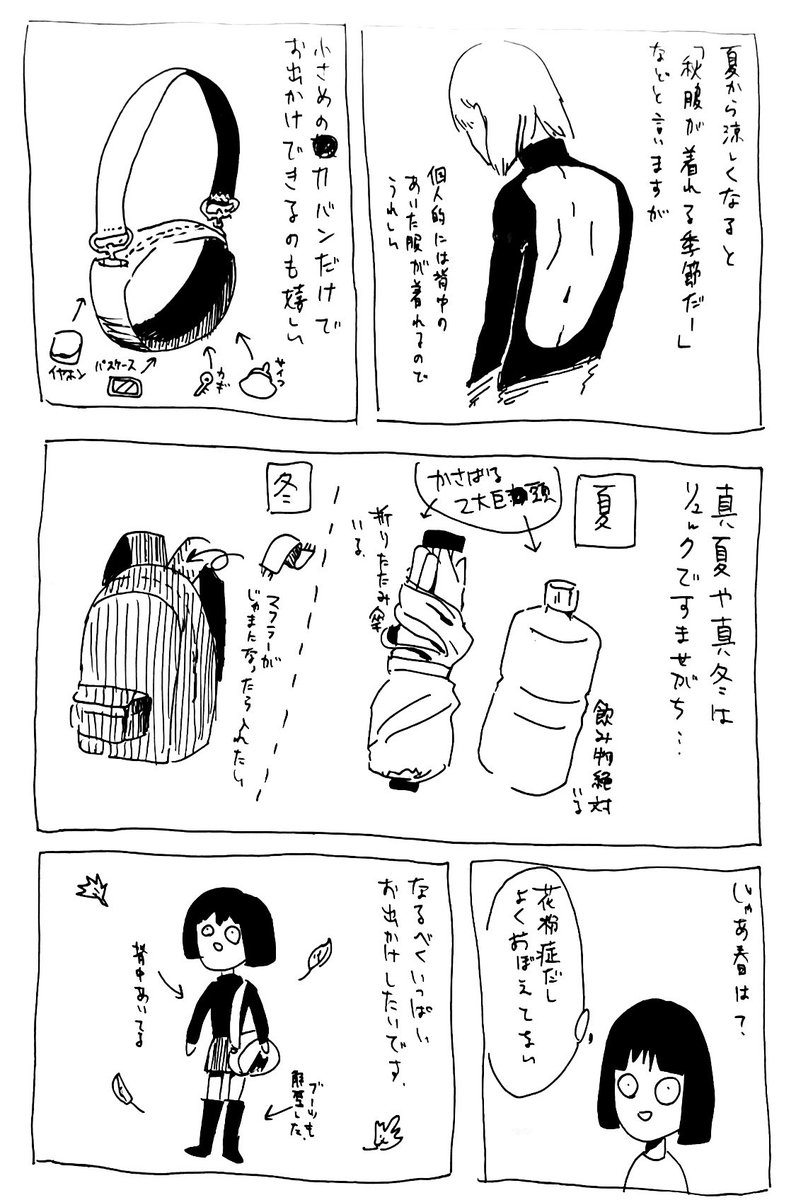 夏から涼しくなると
「秋服が着れる季節だー」
などと言いますが
個人的には背中の
あいた服が着れるので
うれしい
小さめのカバンだけで
お出かけできるのも嬉しい
イヤホン
パスケース
カギ
サイフ
真夏や真冬は
リュックですませがち…
夏
かさばる
2大巨頭
飲み物絶対
いる
折りたたみ傘
いる
冬
マフラーが
じゃまになったら入れたい
じゃあ春は?
花粉症だし
よくおぼえてない
なるべくいっぱい
お出かけしたいです.
背中あいてる
ブーツも
解禁した.